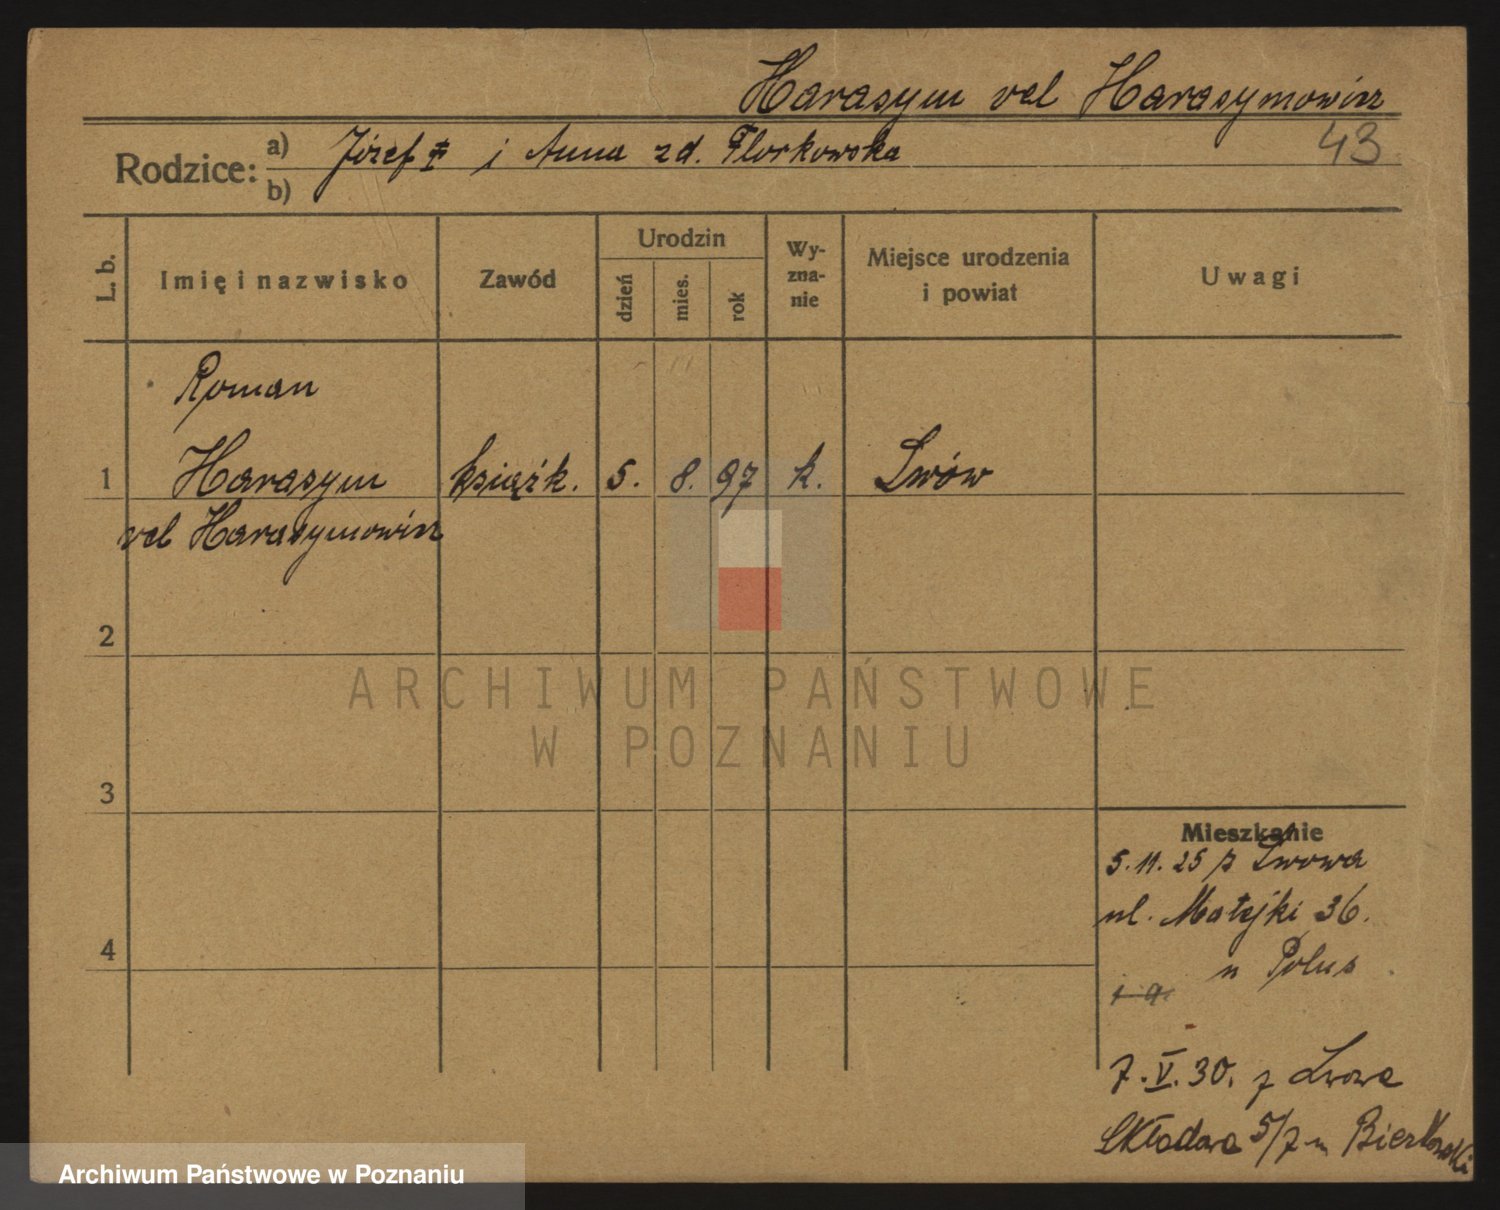 Harasym vel Harasymowicz
43
Rodzice: a) Józef i Anna zd. Florkowska
b)
L. b. Imię i nazwisko Zawód Urodzin dzień mies. rok Wyznanie Miejsce urodzenia i powiat Uwagi
Roman
1 Harasym książk. 5. 8. 97 k. Lwów
vel Harasymowicz
2
ARCHIWUM PAŃSTWOWE
W POZNANIU
3
Mieszkanie
5.11.25 z Lwowa
ul. Matejki 36.
4
u Polus
7.V.30. z Lwowa
Składowa 5/7 u
Archiwum Państwowe w Poznaniu